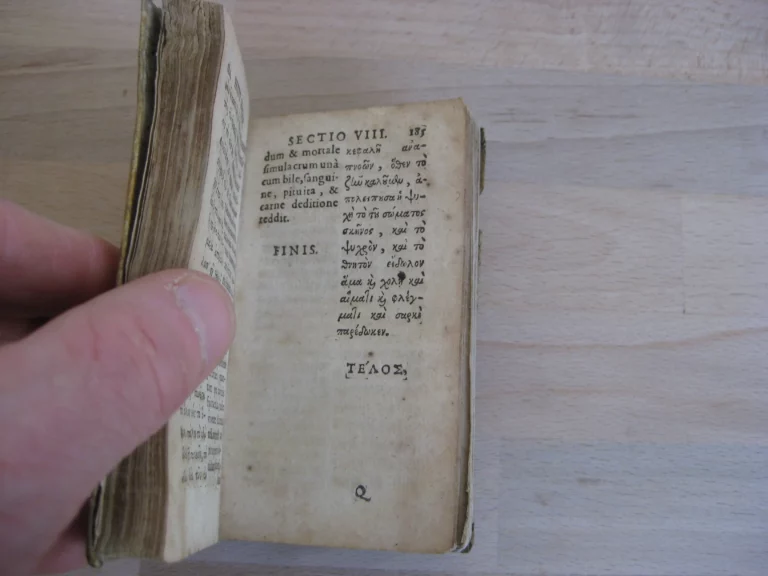 SECTIO VIII. 185
dum & mortale
simulacrum unà
cum bile, sangui-
ne, pituita, &
carne deditione
reddit.
FINIS.
κεφαλῇ ἀνα-
πνοῶν, ὅθεν τὸ
ζῆν καλέομεν, ἀ-
πολείπουσα ἡ ψυ-
χὴ τὸ τοῦ σώματος
σκῆνος, καὶ τὸ
ψυχρὸν, καὶ τὸ
θνητὸν εἴδωλον
ἅμα καὶ χολῇ καὶ
αἵματι καὶ φλέγ-
ματι καὶ σαρκὶ
παρέδωκεν.
ΤΕΛΟΣ,
Q